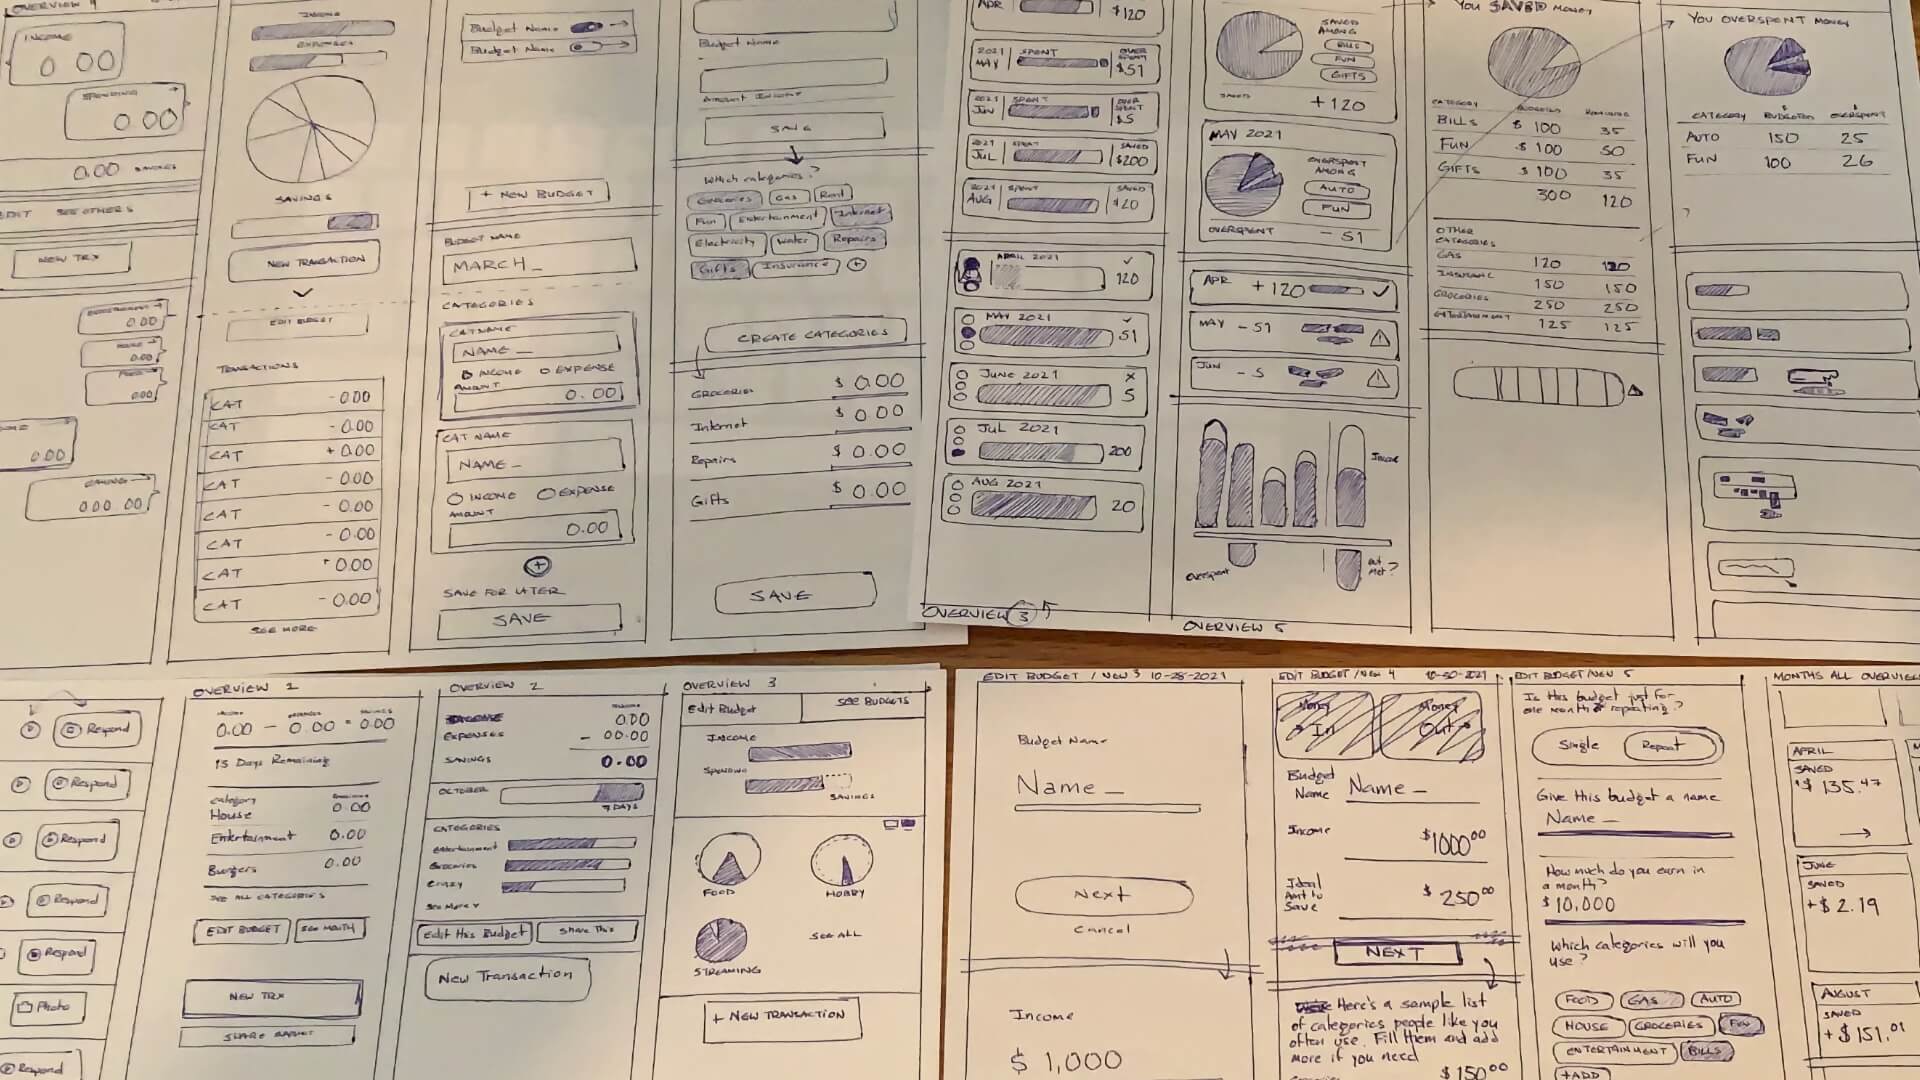 OVERVIEW 4
INCOME
0 00
SPENDING
0 00
0.00 SAVINGS
EDIT SEE OTHERS
NEW TRX
0.00
HOUSE
0.00
0.00
0.00
000 00
INCOME
EXPENSES
SAVINGS
NEW TRANSACTION
EDIT BUDGET
TRANSACTIONS
CAT -0.00
CAT -0.00
CAT +0.00
CAT -0.00
CAT -0.00
CAT -0.00
CAT +0.00
CAT -0.00
SEE MORE
Budget Name
Budget Name
+ NEW BUDGET
BUDGET NAME
MARCH_
CATEGORIES
CAT NAME
NAME_
INCOME EXPENSE
AMOUNT
0.00
CAT NAME
NAME_
INCOME EXPENSE
AMOUNT
0.00
+
SAVE FOR LATER
SAVE
Budget Name
Amount Income
SAVE
Which categories?
Groceries Gas Rent
Fun Entertainment Internet
Electricity Water Repairs
Gifts Insurance +
CREATE CATEGORIES
GROCERIES $ 0.00
Internet $ 0.00
Repairs $ 0.00
Gifts $ 0.00
SAVE
APR $120
2021 MAY SPENT OVER SPENT $51
2021 JUN SPENT OVER SPENT $5
2021 JUL SPENT SAVED $200
2021 AUG SPENT SAVED $20
APRIL 2021
120
MAY 2021
51
JUNE 2021
5
JUL 2021
200
AUG 2021
20
OVERVIEW 3
SAVED
AMONG
BILLS
FUN
GIFTS
+120
MAY 2021
OVERSPENT
AMONG
AUTO
FUN
OVERSPENT -51
APR +120
MAY -51
JUN -5
INCOME
OVERSPENT
OVERVIEW 5
YOU SAVED MONEY
CATEGORY BUDGETED REMAINING
BILLS $ 100 35
FUN $ 100 50
GIFTS $ 100 35
300 120
OTHER
CATEGORIES
GAS 120 120
INSURANCE 150 150
GROCERIES 250 250
ENTERTAINMENT 125 125
YOU OVERSPENT MONEY
CATEGORY BUDGETED OVERSPENT
AUTO 150 25
FUN 100 26
?
Respond
Respond
Respond
Respond
Respond
Photo
Respond
OVERVIEW 1
0.00 - 0.00 = 0.00
15 Days Remaining
Category
House 0.00
Entertainment 0.00
Burgers 0.00
SEE ALL CATEGORIES
EDIT BUDGET SEE MONTH
NEW TRX
SHARE BUDGET
OVERVIEW 2
INCOME 0.00
EXPENSES - 00.00
SAVINGS 0.00
OCTOBER
7 DAYS
CATEGORIES
Entertainment
Groceries
Crazy
See More
Edit this Budget Share This
New Transaction
OVERVIEW 3
Edit Budget SEE BUDGETS
INCOME
Spending
SAVINGS
FOOD HOBBY
STREAMING SEE ALL
+ NEW TRANSACTION
EDIT BUDGET / NEW 3 10-28-2021
Budget Name
Name_
Next
Cancel
Income
$ 1,000
EDIT BUDGET / NEW 4 10-30-2021
Money In Money Out
Budget Name Name_
Income $1000 00
Ideal Amt to Save $ 250 00
NEXT
Here's a sample list
of categories people like you
often use. Fill them and add
more if you need
$ 150 00
EDIT BUDGET/NEW 5
Is this budget just for
one month or repeating?
Single Repeat
Give this budget a name
Name_
How much do you earn in
a month?
$ 10,000
Which categories will you
use?
FOOD GAS AUTO
HOUSE GROCERIES FUN
ENTERTAINMENT BILLS
+ADD
MONTHS ALL OVERVIEW
APRIL
SAVED
+$ 135.47
JUNE
SAVED
+$ 2.19
AUGUST
SAVED
+$151.01